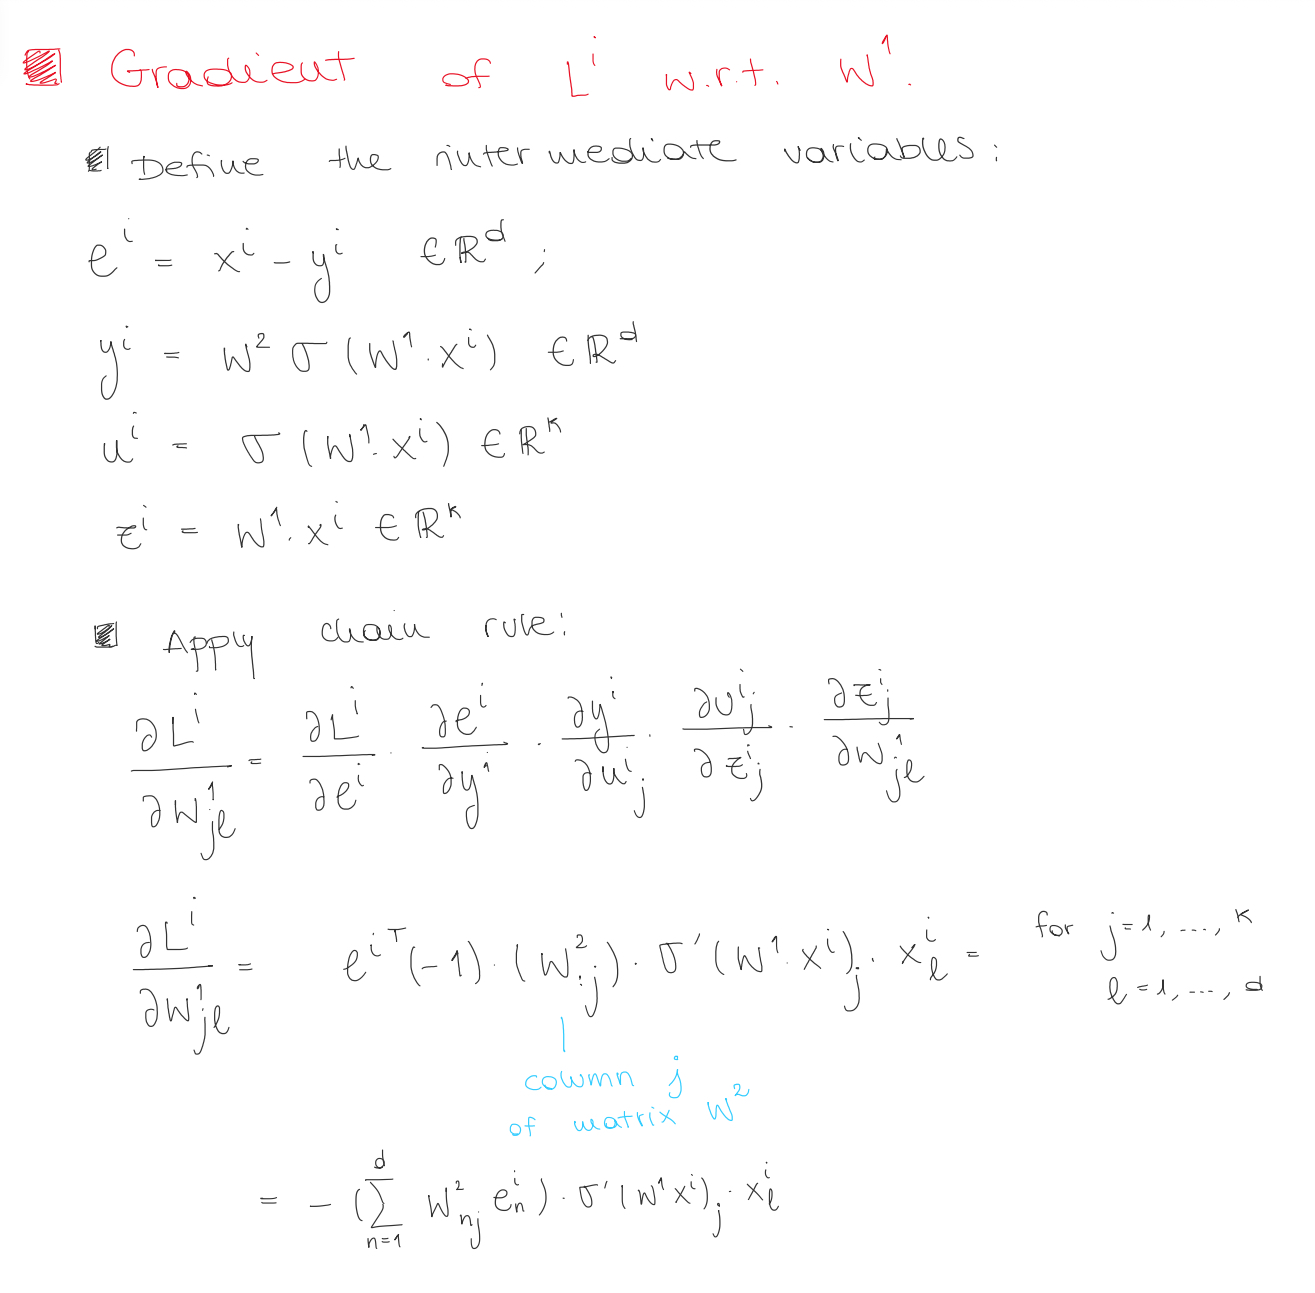 Gradient of Lⁱ w.r.t. W¹.
Define the intermediate variables:
eⁱ = xⁱ - yⁱ ∈ ℝᵈ ;
yⁱ = W² σ (W¹ · xⁱ) ∈ ℝᵈ
uⁱ = σ (W¹ · xⁱ) ∈ ℝᵏ
zⁱ = W¹ · xⁱ ∈ ℝᵏ
Apply chain rule:
∂Lⁱ/∂W¹_{jℓ} = ∂Lⁱ/∂eⁱ · ∂eⁱ/∂yⁱ · ∂yⁱ/∂uⁱ_j · ∂uⁱ_j/∂zⁱ_j · ∂zⁱ_j/∂W¹_{jℓ}
∂Lⁱ/∂W¹_{jℓ} = eⁱᵀ (-1) · (W²_{:j}) · σ′(W¹ · xⁱ)_j · xⁱ_ℓ = for j=1, ..., k
ℓ=1, ..., d
column j
of matrix W²
= - (∑_{n=1}^{d} W²_{nj} eⁱ_n) · σ′(W¹xⁱ)_j · xⁱ_ℓ